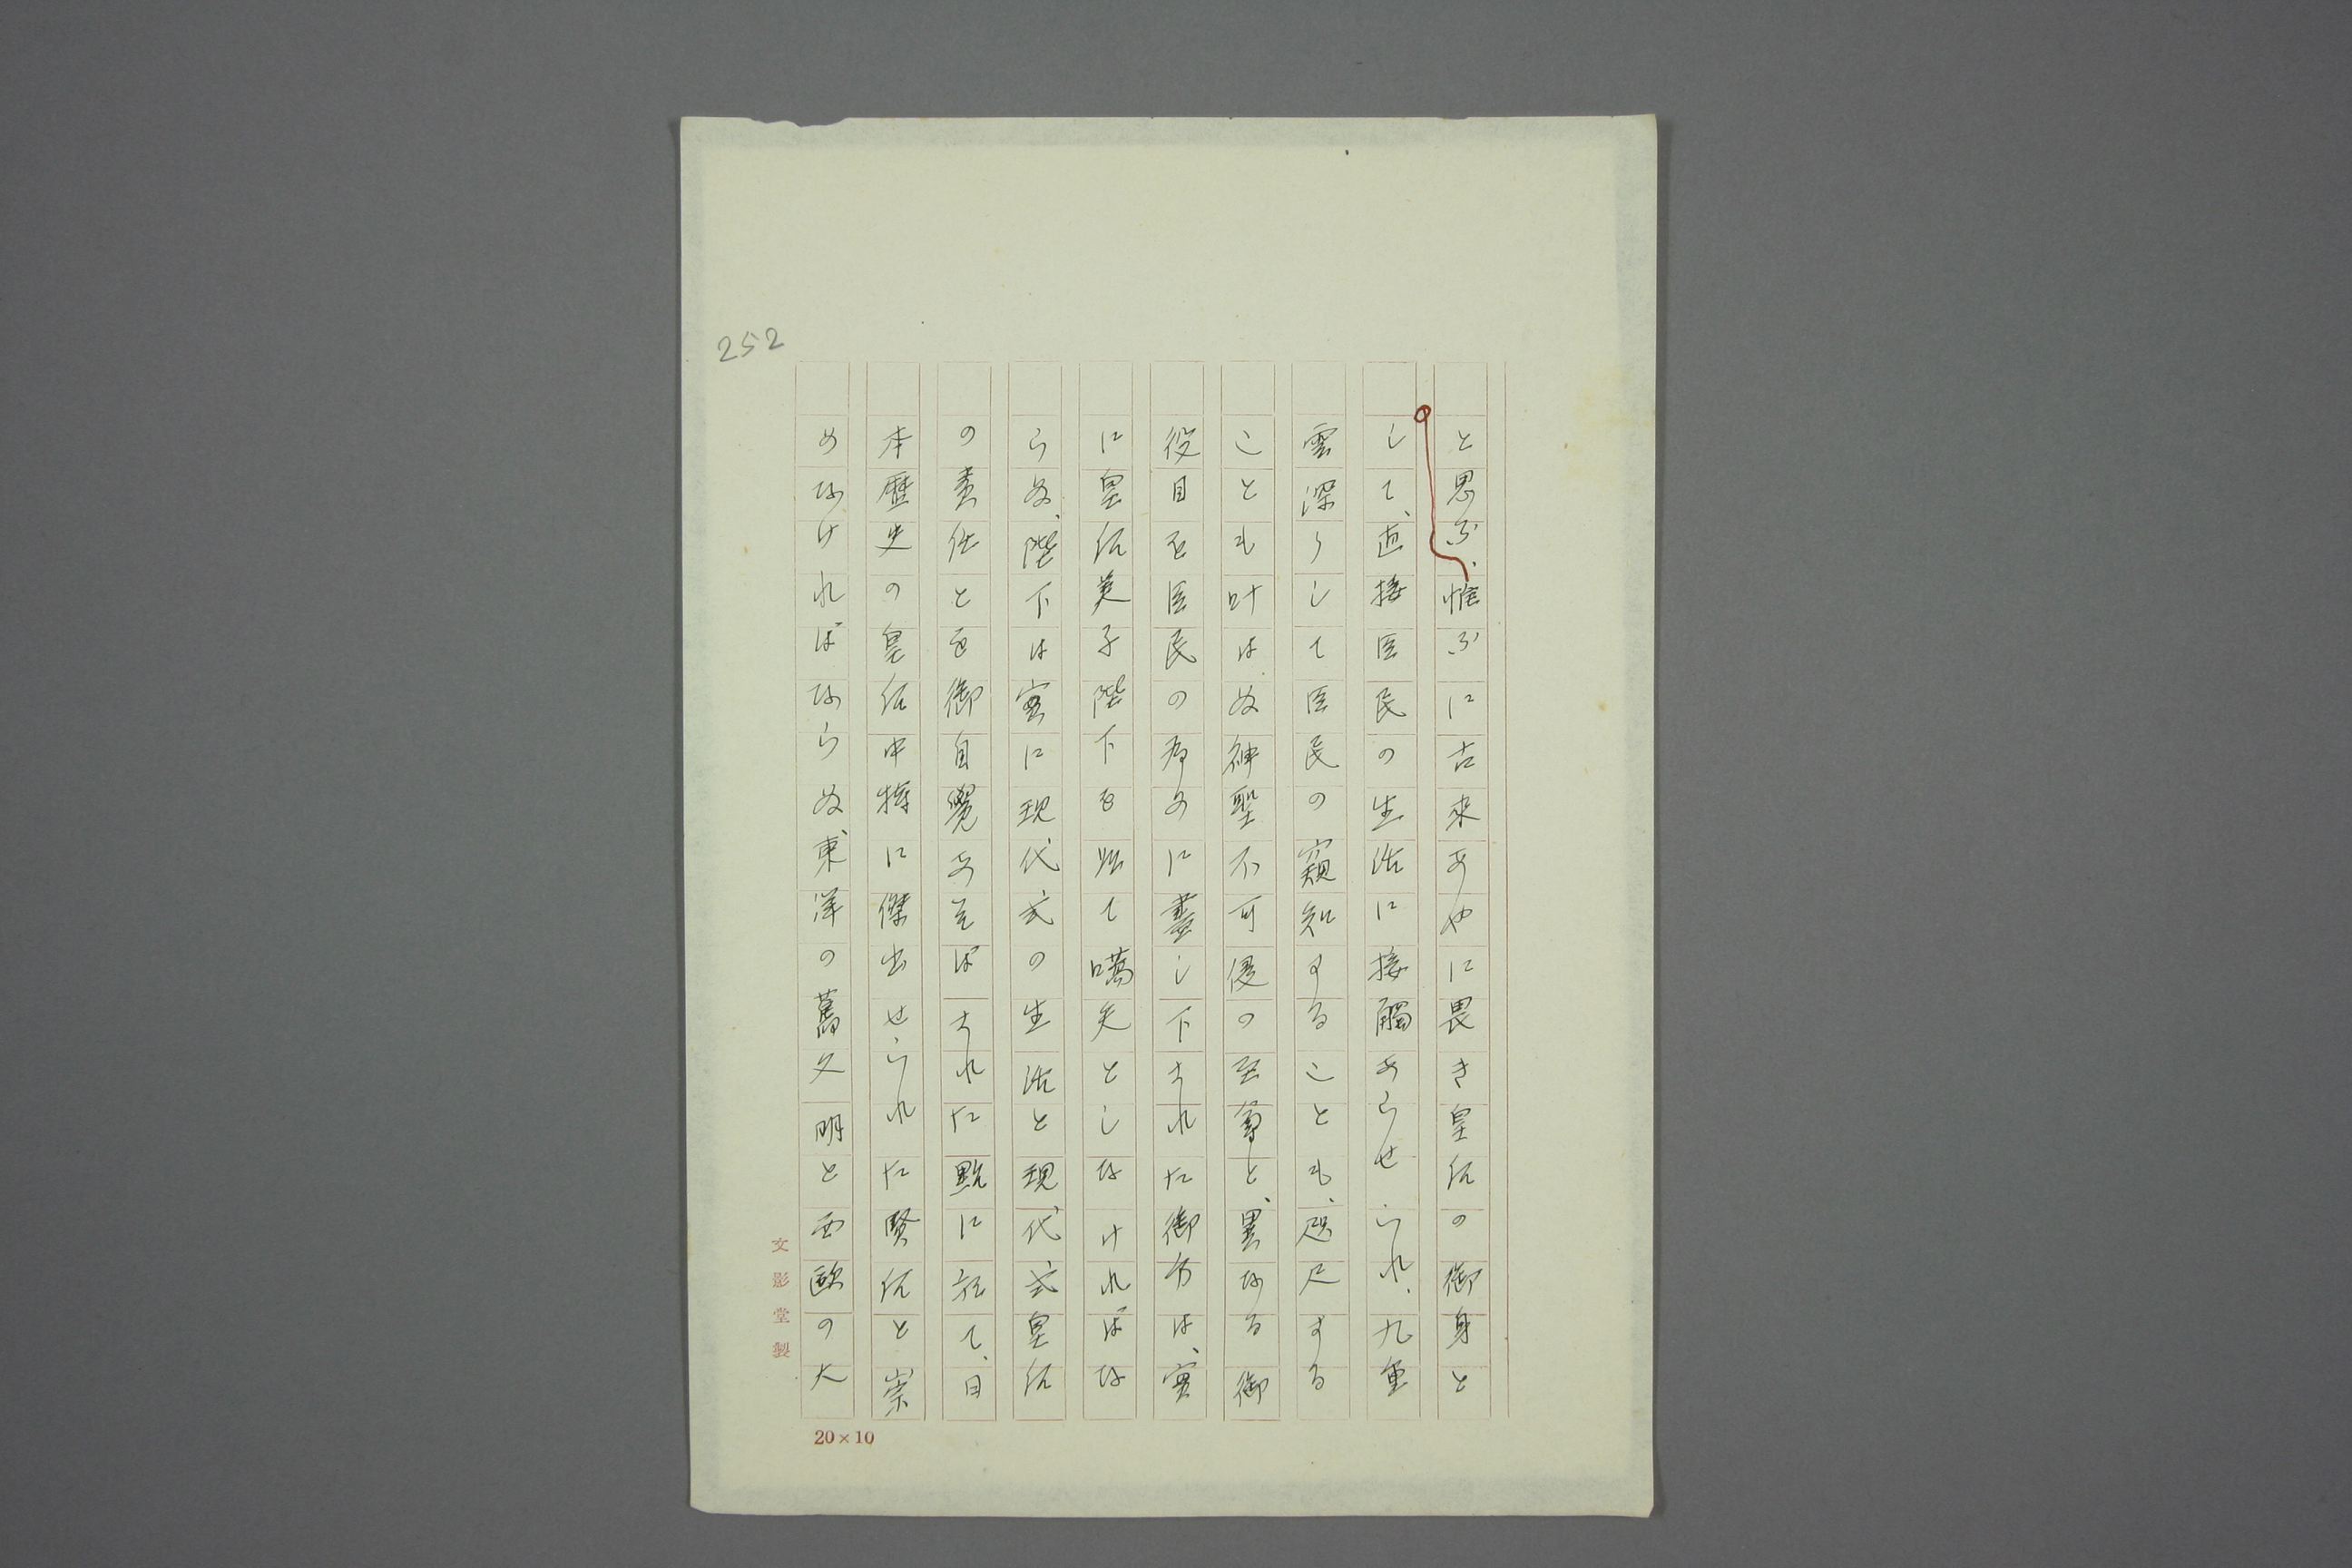 252
と思ふ、惟ふに古來あやに畏き皇后の御身と
して、直接臣民の生活に接觸あらせられ、九重
雲深うして臣民の窺知することも、咫尺する
ことも叶はぬ神聖不可侵の至尊と、異なる御
役目を臣民の為めに盡し下された御方は、實
に皇后美子陛下を以て嚆矢としなければな
らぬ、陛下は實に現代式の生活と現代式皇后
の責任とを御自覺あそばされた點に於て、日
本歷史の皇后中特に傑出せられた賢后と崇
めなければならぬ、東洋の舊文明と西歐の大
文影堂製
20×10